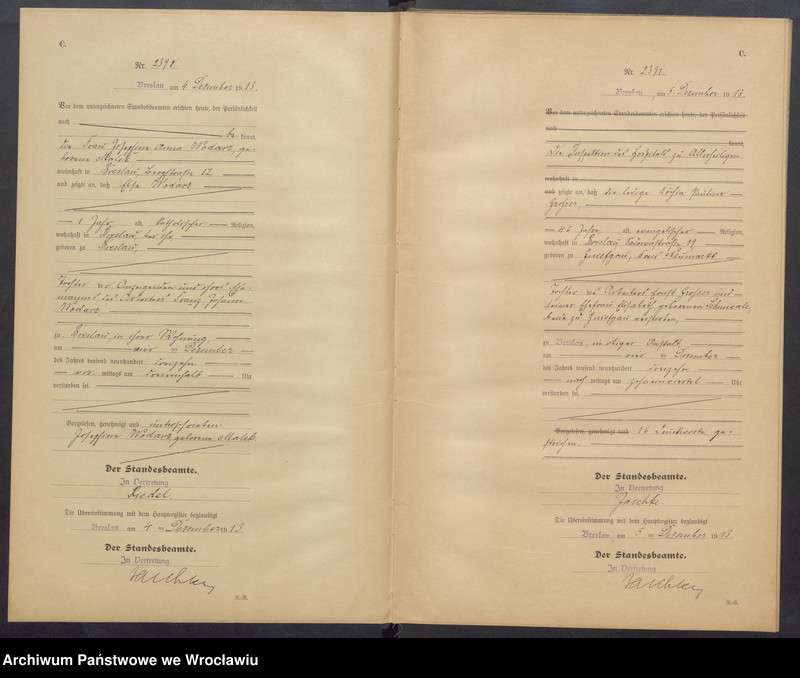 C.
Nr. 2390.
Breslau am 4. Dezember 1913.
Vor dem unterzeichneten Standesbeamten erschien heute, der Persönlichkeit
nach be kannt,
die Frau Josephine Anna Wodarz, ge-
borene Malek
wohnhaft in Breslau, 12
und zeigte an, daß Else Wodarz
1 Jahr alt, katholischer Religion,
wohnhaft in Breslau, bei ihr,
geboren zu Breslau,
Tochter der Anzeigenden und ihres Ehe-
mannes des Arbeiters Franz Johann
Wodarz,
zu Breslau, in ihrer Wohnung,
am vier ten Dezember
des Jahres tausend neunhundert dreizehn
vor mittags um Uhr
verstorben sei.
Vorgelesen, genehmigt und unterschrieben
Josephine Wodarz geborene Malek.
Der Standesbeamte.
In Vertretung
Riedel.
Die Übereinstimmung mit dem Hauptregister beglaubigt
Breslau am 4. ten Dezember 1913.
Der Standesbeamte.
In Vertretung
Jaschke
R.-R.
C.
Nr. 2391.
Breslau, am 5. Dezember 1913.
Vor dem unterzeichneten Standesbeamten erschien heute, der Persönlichkeit
nach kannt,
Die Inspektion des Hospitals zu Allerheiligen
wohnhaft in
und zeigte an, daß die ledige Köchin Pauline
Grosser,
46 Jahre alt, evangelischer Religion,
wohnhaft in Breslau 19,
geboren zu Kreis Neumarkt,
Tochter des Arbeiters Grosser und
seiner Ehefrau Elisabeth geborenen
beide zu verstorben,
zu Breslau, in obiger Anstalt,
am vier ten Dezember
des Jahres tausend neunhundert dreizehn
nach mittags um Uhr
verstorben sei.
Vorgelesen, genehmigt und 16 Druckworte ge-
strichen.
Der Standesbeamte.
In Vertretung
Jaschke.
Die Übereinstimmung mit dem Hauptregister beglaubigt
Breslau, am 5. ten Dezember 1913.
Der Standesbeamte.
In Vertretung
Jaschke
R.-R.
Archiwum Państwowe we Wrocławiu